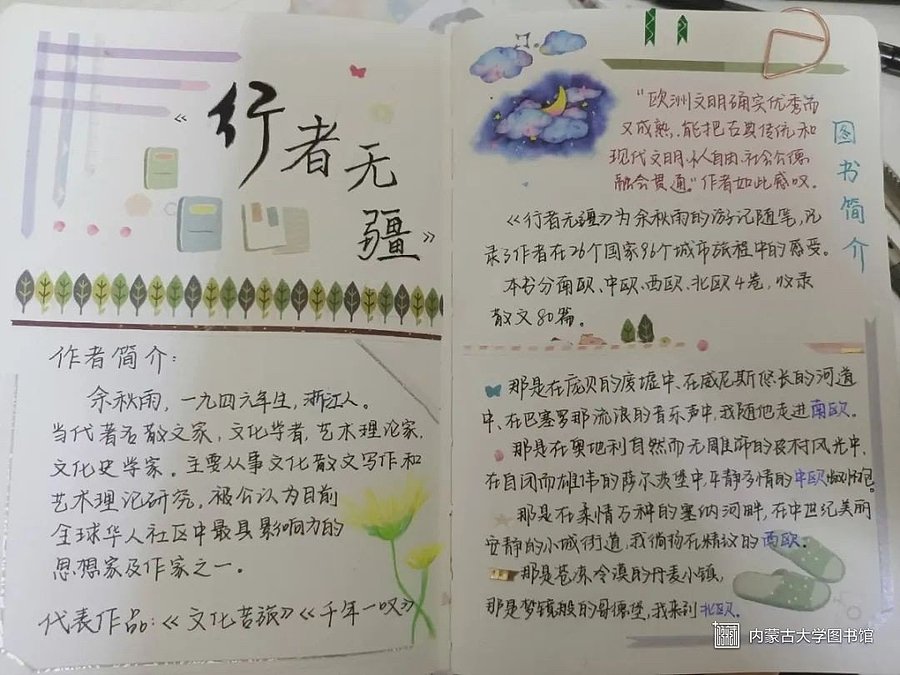 《行者无疆》
作者简介：
余秋雨，一九四六年生，浙江人。
当代著名散文家，文化学者，艺术理论家，
文化史学家。主要从事文化散文写作和
艺术理论研究。被公认为目前
全球华人社区中最具影响力的
思想家及作家之一。
代表作品：《文化苦旅》《千年一叹》
图书简介
“欧洲文明确实优秀而
又成熟，能把古典传统和
现代文明、个人自由、社会公德
融会贯通。”作者如此感叹。
《行者无疆》为余秋雨的游记随笔，记
录了作者在26个国家96个城市旅程中的感受。
本书分南欧、中欧、西欧、北欧4卷，收录
散文80篇。
那是在庞贝的废墟中、在威尼斯悠长的河道
中、在巴塞罗那流浪的音乐声中，我随他走进南欧。
那是在奥地利自然而无雕饰的农村风光中，
在自闭而雄伟的萨尔茨堡中，平静多情的中欧
那是在柔情万种的塞纳河畔，在中世纪美丽
安静的小城街道，我徜徉在精致的西欧。
那是苍凉冷漠的丹麦小镇，
那是梦镜般的哥德堡，我来到北欧。
内蒙古大学图书馆